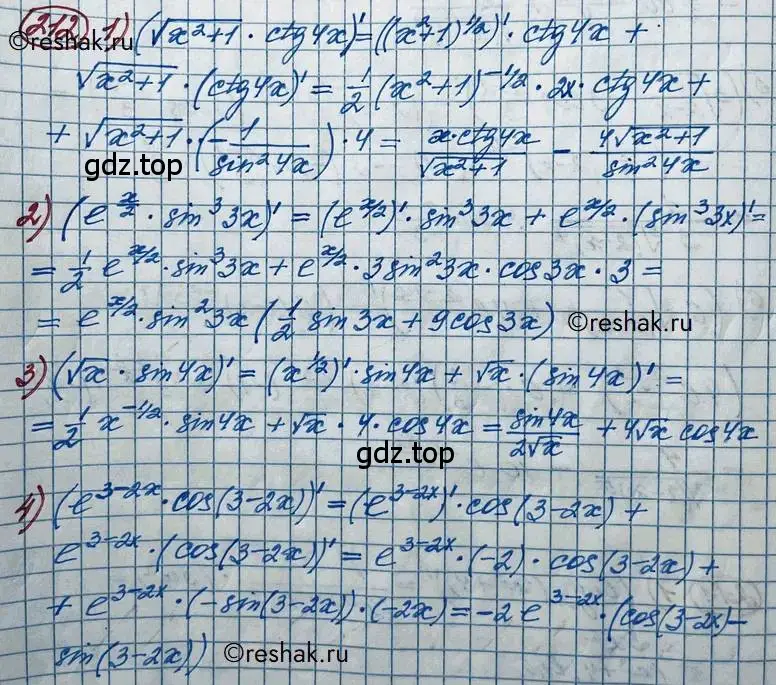 212 1) (√x²+1 · ctg4x)' = ((x²+1)^1/2)' · ctg4x +
√x²+1 · (ctg4x)' = 1/2 (x²+1)^-1/2 · 2x · ctg4x +
+ √x²+1 · (- 1/sin²4x) · 4 = x·ctg4x/√x²+1 - 4√x²+1/sin²4x
gdz.top
2) (e^x/2 · sin³3x)' = (e^x/2)' · sin³3x + e^x/2 · (sin³3x)' =
= 1/2 e^x/2 · sin³3x + e^x/2 · 3sin²3x · cos3x · 3 =
= e^x/2 · sin²3x (1/2 sin3x + 9cos3x) ©reshak.ru
3) (√x · sin4x)' = (x^1/2)' · sin4x + √x · (sin4x)' =
= 1/2 x^-1/2 · sin4x + √x · 4 · cos4x = sin4x/2√x + 4√x cos4x
gdz.top
4) (e^3-2x · cos(3-2x))' = (e^3-2x)' · cos(3-2x) +
e^3-2x · (cos(3-2x))' = e^3-2x · (-2) · cos(3-2x) +
+ e^3-2x · (-sin(3-2x)) · (-2x) = -2e^3-2x · (cos(3-2x) -
sin(3-2x)) ©reshak.ru